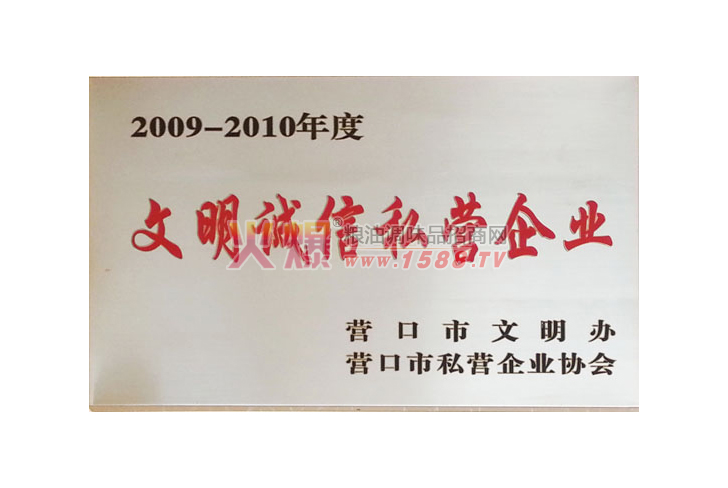 2009-2010年度
文明诚信私营企业
火爆®粮油调味品招商网
www.1588.TV
营口市文明办
营口市私营企业协会